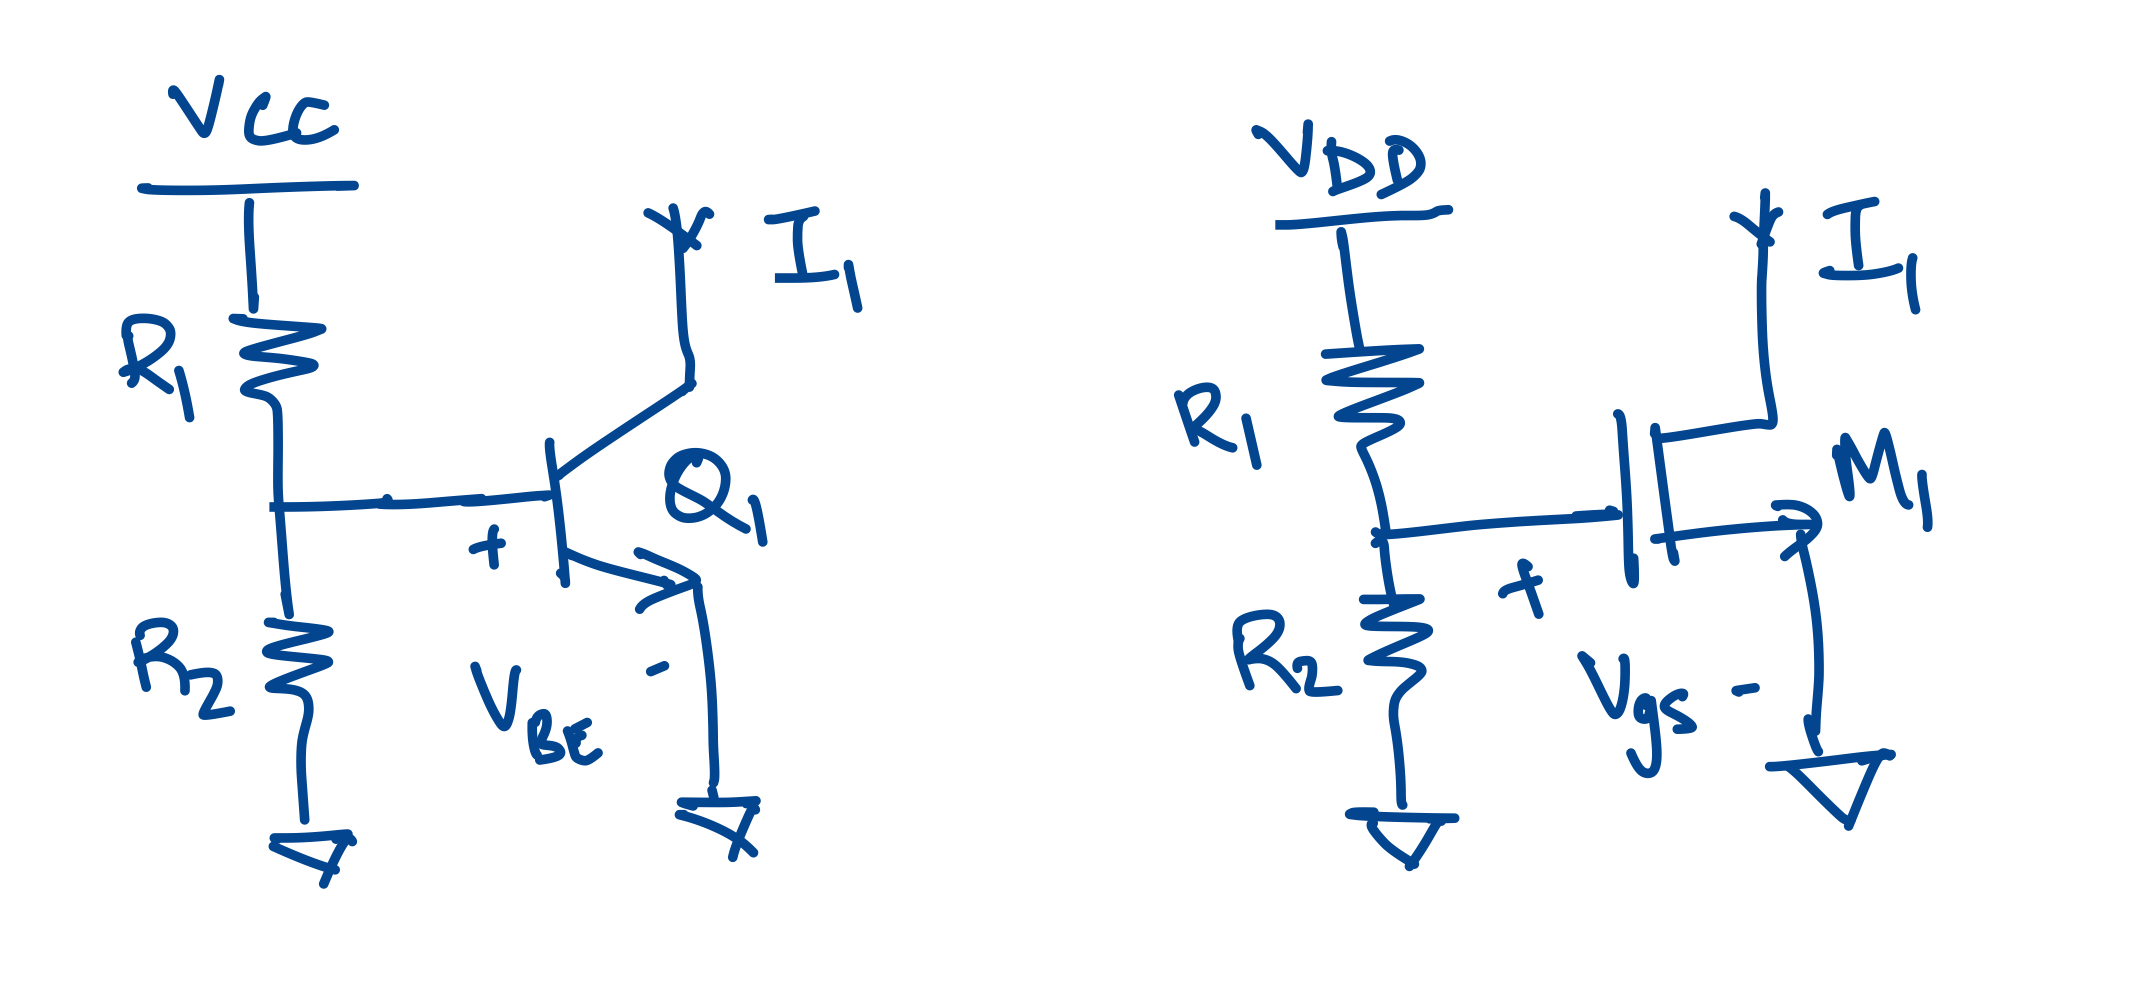 VCC
I1
R1
Q1
+
R2
-
VBE
VDD
I1
R1
M1
+
R2
Vgs
-